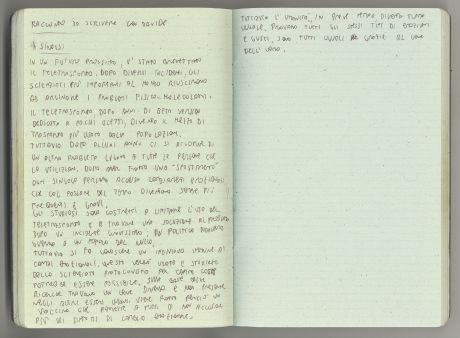 RACCONTO DA SCRIVERE CON DAVIDE
SINOSSI
IN UN FUTURO PROSSIMO, È STATO INVENTATO
IL TELETRASPORTO. DOPO DIVERSI INCIDENTI, GLI
SCIENZIATI PIÙ IMPORTANTI AL MONDO RIUSCIRONO
AD ARGINARE I PROBLEMI FISICO-MOLECOLARI.
IL TELETRASPORTO, DOPO ANNI DI BETA VERSION
DEDICATA A POCHI ELETTI, DIVENTA IL MEZZO DI
TRASPORTO PIÙ USATO DALLA POPOLAZIONE.
TUTTAVIA DOPO ALCUNI ANNI CI SI ACCORSE DI
UN ALTRO PROBLEMA LEGATO A TUTTE LE PERSONE CHE
LO UTILIZZANO, DOPO AVER FATTO UNO "SPOSTAMENTO"
OGNI SINGOLA PERSONA ACCUSA CAMBIAMENTI EMOZIONALI
CHE COL PASSARE DEL TEMPO DIVENTANO SEMPRE PIÙ
FREQUENTI E GRAVI.
GLI STUDIOSI SONO COSTRETTI A LIMITARE L'USO DEL
TELETRASPORTO E A TROVARE UNA SOLUZIONE AL PROBLEMA
DOPO UN INCIDENTE GRAVISSIMO: UN POLITICO DICHIARA
GUERRA A UN POPOLO DEL NULLA.
TUTTAVIA SI FA CONOSCERE UN INDIVIDUO IMMUNE AI
CAMBI EMOZIONALI, QUESTI VERRÀ USATO E STUDIATO
DALLO SCIENZIATO PROTAGONISTA PER CAPIRE COME
POTREBBE ESSERE POSSIBILE, SULLA BASE DELLE
RICERCHE TROVANO UN GENE DIVERSO E NON PRESENTE
NEGLI ALTRI ESSERI UMANI. VIENE FATTO PERCIÒ UN
VACCINO CHE PERMETTE A TUTTI DI NON ACCUSARE
PIÙ DEI SINTOMI DI CAMBIO EMOZIONALE.
TUTTAVIA L'UMANITÀ, IN BREVE TEMPO DIVENTA TUTTA
UGUALE, PROVANO TUTTI GLI STESSI TIPI DI EMOZIONI
E GUSTI, SONO TUTTI UGUALI GRAZIE AL GENE
DELL'UOMO.